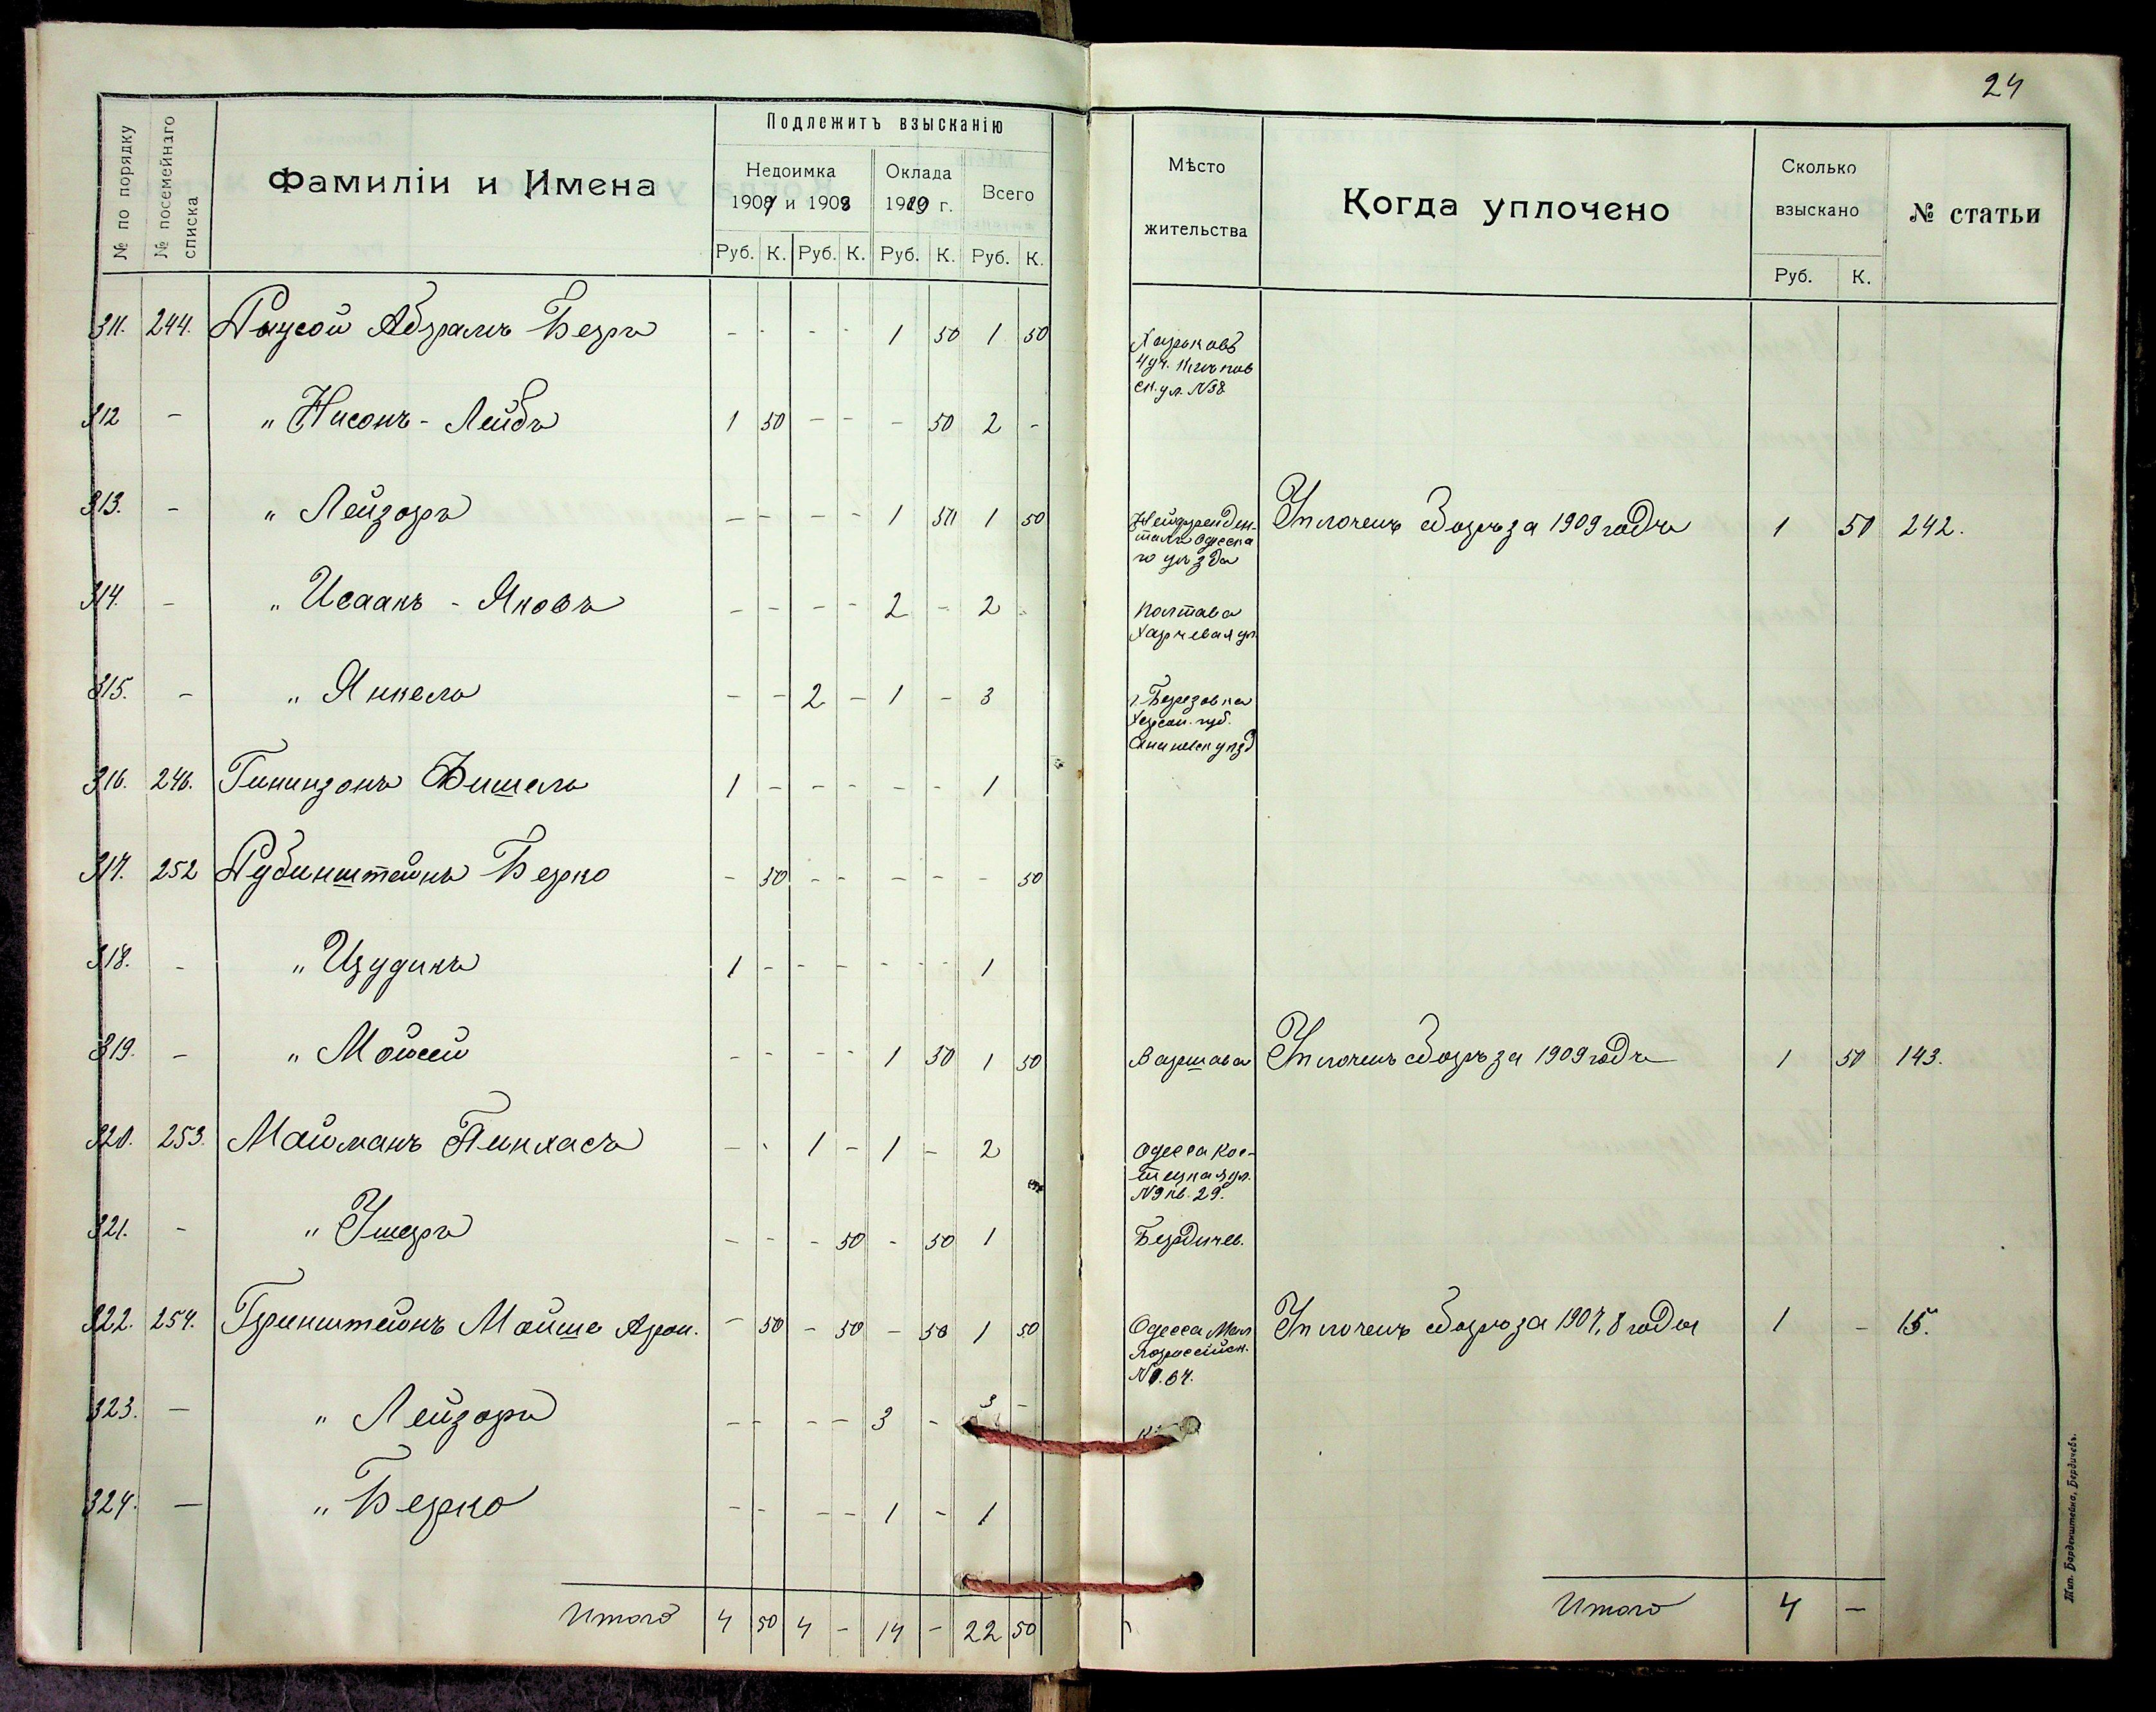 24
№ по порядку
№ посемейнаго списка
Фамиліи и Имена
Подлежитъ взысканію
Недоимка 1907 и 1908
Оклада 1909 г.
Всего
Руб. К. Руб. К. Руб. К. Руб. К.
Мѣсто жительства
Когда уплочено
Сколько взыскано
Руб. К.
№ статьи
311. 244. Абрамъ Беръ - - - - 1 50 1 50 Харьковъ
4 уч.
ск. ул. №38
312 - " Нисонъ - Лейбъ 1 50 - - - 50 2 -
313. - " Лейзоръ - - - - 1 50 1 50 Уплоченъ сборъ за 1909 годъ 1 50 242.
Одесска
го уѣзда
314. - " Исаакъ - Яковъ - - - - 2 - 2 - Полтава
Харчевая ул.
315. - " Янкель - - 2 - 1 - 3 г. Березовка
Херсон. губ.
Ананьевск уѣзд
316. 246. Гининзонъ Фишель 1 - - - - - 1
317. 252 Рубинштейнъ Берко - 50 - - - - - 50
318. - " 1 - - - - - - 1
319. - " Мойсей - - - - 1 50 1 50 Варшава Уплоченъ сборъ за 1909 годъ 1 50 143.
320. 253. Майманъ Пинхасъ - - 1 - 1 - 2 Одесса Кос-
тецкая ул.
№9 кв. 29.
321. - " Ушеръ - - - 50 - 50 1 Бердичев.
322. 254. Гринштейнъ Мойше Арон. - 50 - 50 - 50 1 50 Одесса Мал Уплоченъ сборъ за 1907, 8 года 1 - 15.
№ 64.
323. - " Лейзоръ - - - - 3 - 3 -
324. - " Берко - - - - 1 - 1
Итого 4 50 4 - 14 - 22 50
Итого 4 -
Тип. Барденштейна, Бердичевъ.